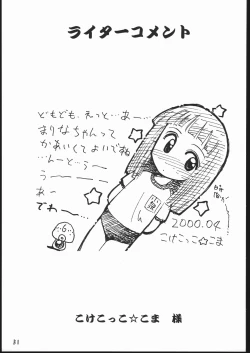 ライターコメント
どもども、えっと…あー…
まりなちゃんって
かあいくてよいでね
…んーと…うー
うー
あー
でわー
2000.04
こけこっこ☆こま
こけこっこ☆こま　様
31